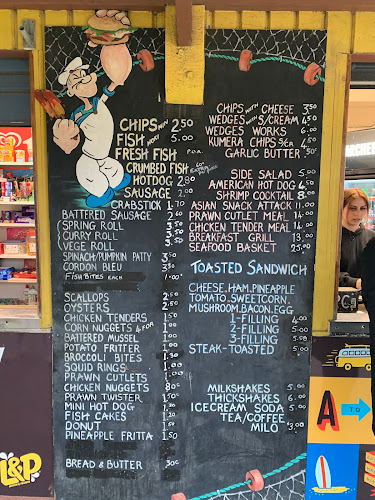 CHIPS MIN 2.50
FISH HOKI 5.00
FRESH FISH P.O.A
CRUMBED FISH
HOTDOG 2.80
SAUSAGE 2.00
CRABSTICK 1.70
BATTERED SAUSAGE 2.60
SPRING ROLL 3.50
CURRY ROLL 3.50
VEGE ROLL 3.50
SPINACH/PUMPKIN PATTY 3.50
CORDON BLEU
FISH BITES EACH 1.00
SCALLOPS 2.50
OYSTERS 2.50
CHICKEN TENDERS 1.50
CORN NUGGETS 4 FOR 1.00
BATTERED MUSSEL
POTATO FRITTER 1.00
BROCCOLI BITES
SQUID RINGS 1.00
PRAWN CUTLETS
CHICKEN NUGGETS 80c
PRAWN TWISTER 1.50
MINI HOT DOG 1.30
FISH CAKES
DONUT 1.50
PINEAPPLE FRITTA 1.50
BREAD & BUTTER 30c
CHIPS WITH CHEESE 3.50
WEDGES WITH S/CREAM 4.50
WEDGES WORKS 6.00
KUMERA CHIPS S/CA 4.50
GARLIC BUTTER .50c
SIDE SALAD 5.00
AMERICAN HOT DOG 4.50
SHRIMP COCKTAIL 8.00
ASIAN SNACK ATTACK 11.00
PRAWN CUTLET MEAL 14.00
CHICKEN TENDER MEAL 14.00
BREAKFAST GRILL 13.00
SEAFOOD BASKET 25.00
TOASTED SANDWICH
CHEESE.HAM.PINEAPPLE
TOMATO.SWEETCORN.
MUSHROOM.BACON.EGG
1-FILLING 4.00
2-FILLING 5.00
3-FILLING 5.50
STEAK-TOASTED 5.00
MILKSHAKES 5.00
THICKSHAKES 6.00
ICECREAM SODA 5.00
TEA/COFFEE
MILO 3.00
L&P
A